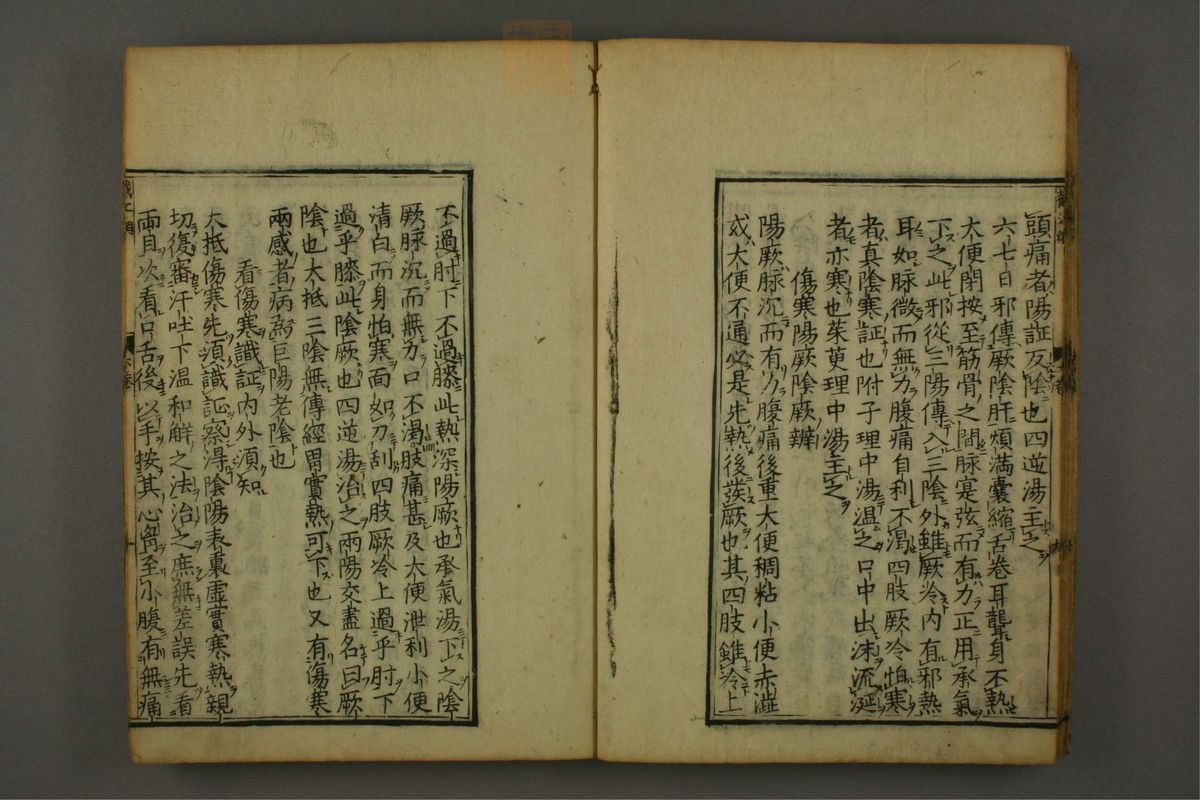 頭痛者陽証反陰也四逆湯主之
六七日邪傳厥陰肝煩満囊縮舌卷耳聾身不熱
大便閉按至筋骨之間脉寔弦而有力正用承氣
下之此邪從三陽傳入三陰外雖厥冷内有邪熱
耳如脉微而無力腹痛自利不渇四肢厥冷怕寒
者真陰寒証也附子理中湯温之口中出沫流涎
者亦寒也茱萸理中湯主之
傷寒陽厥陰厥辨
陽厥脉沉而有力腹痛後重大便稠粘小便赤澁
或大便不通必是先熱後発厥也其四肢雖冷上
不過肘下不過膝此熱深陽厥也承氣湯下之陰
厥脉沉而無力口不渇肢痛甚及大便泄利小便
清白而身怕寒面如刀刮四肢厥冷上過乎肘下
過乎膝此陰厥也四逆湯治之兩陽交盡名曰厥
陰也大抵三陰無傳經胃實熱可下也又有傷寒
兩感者病為巨陽老陰也
看傷寒識証内外須知
大抵傷寒先須識証察淂陰陽表裏虚實寒熱親
切復審汗吐下温和解之法治之庶無差誤先看
兩目次看口舌後以手按其心胷至小腹有無痛
六卷